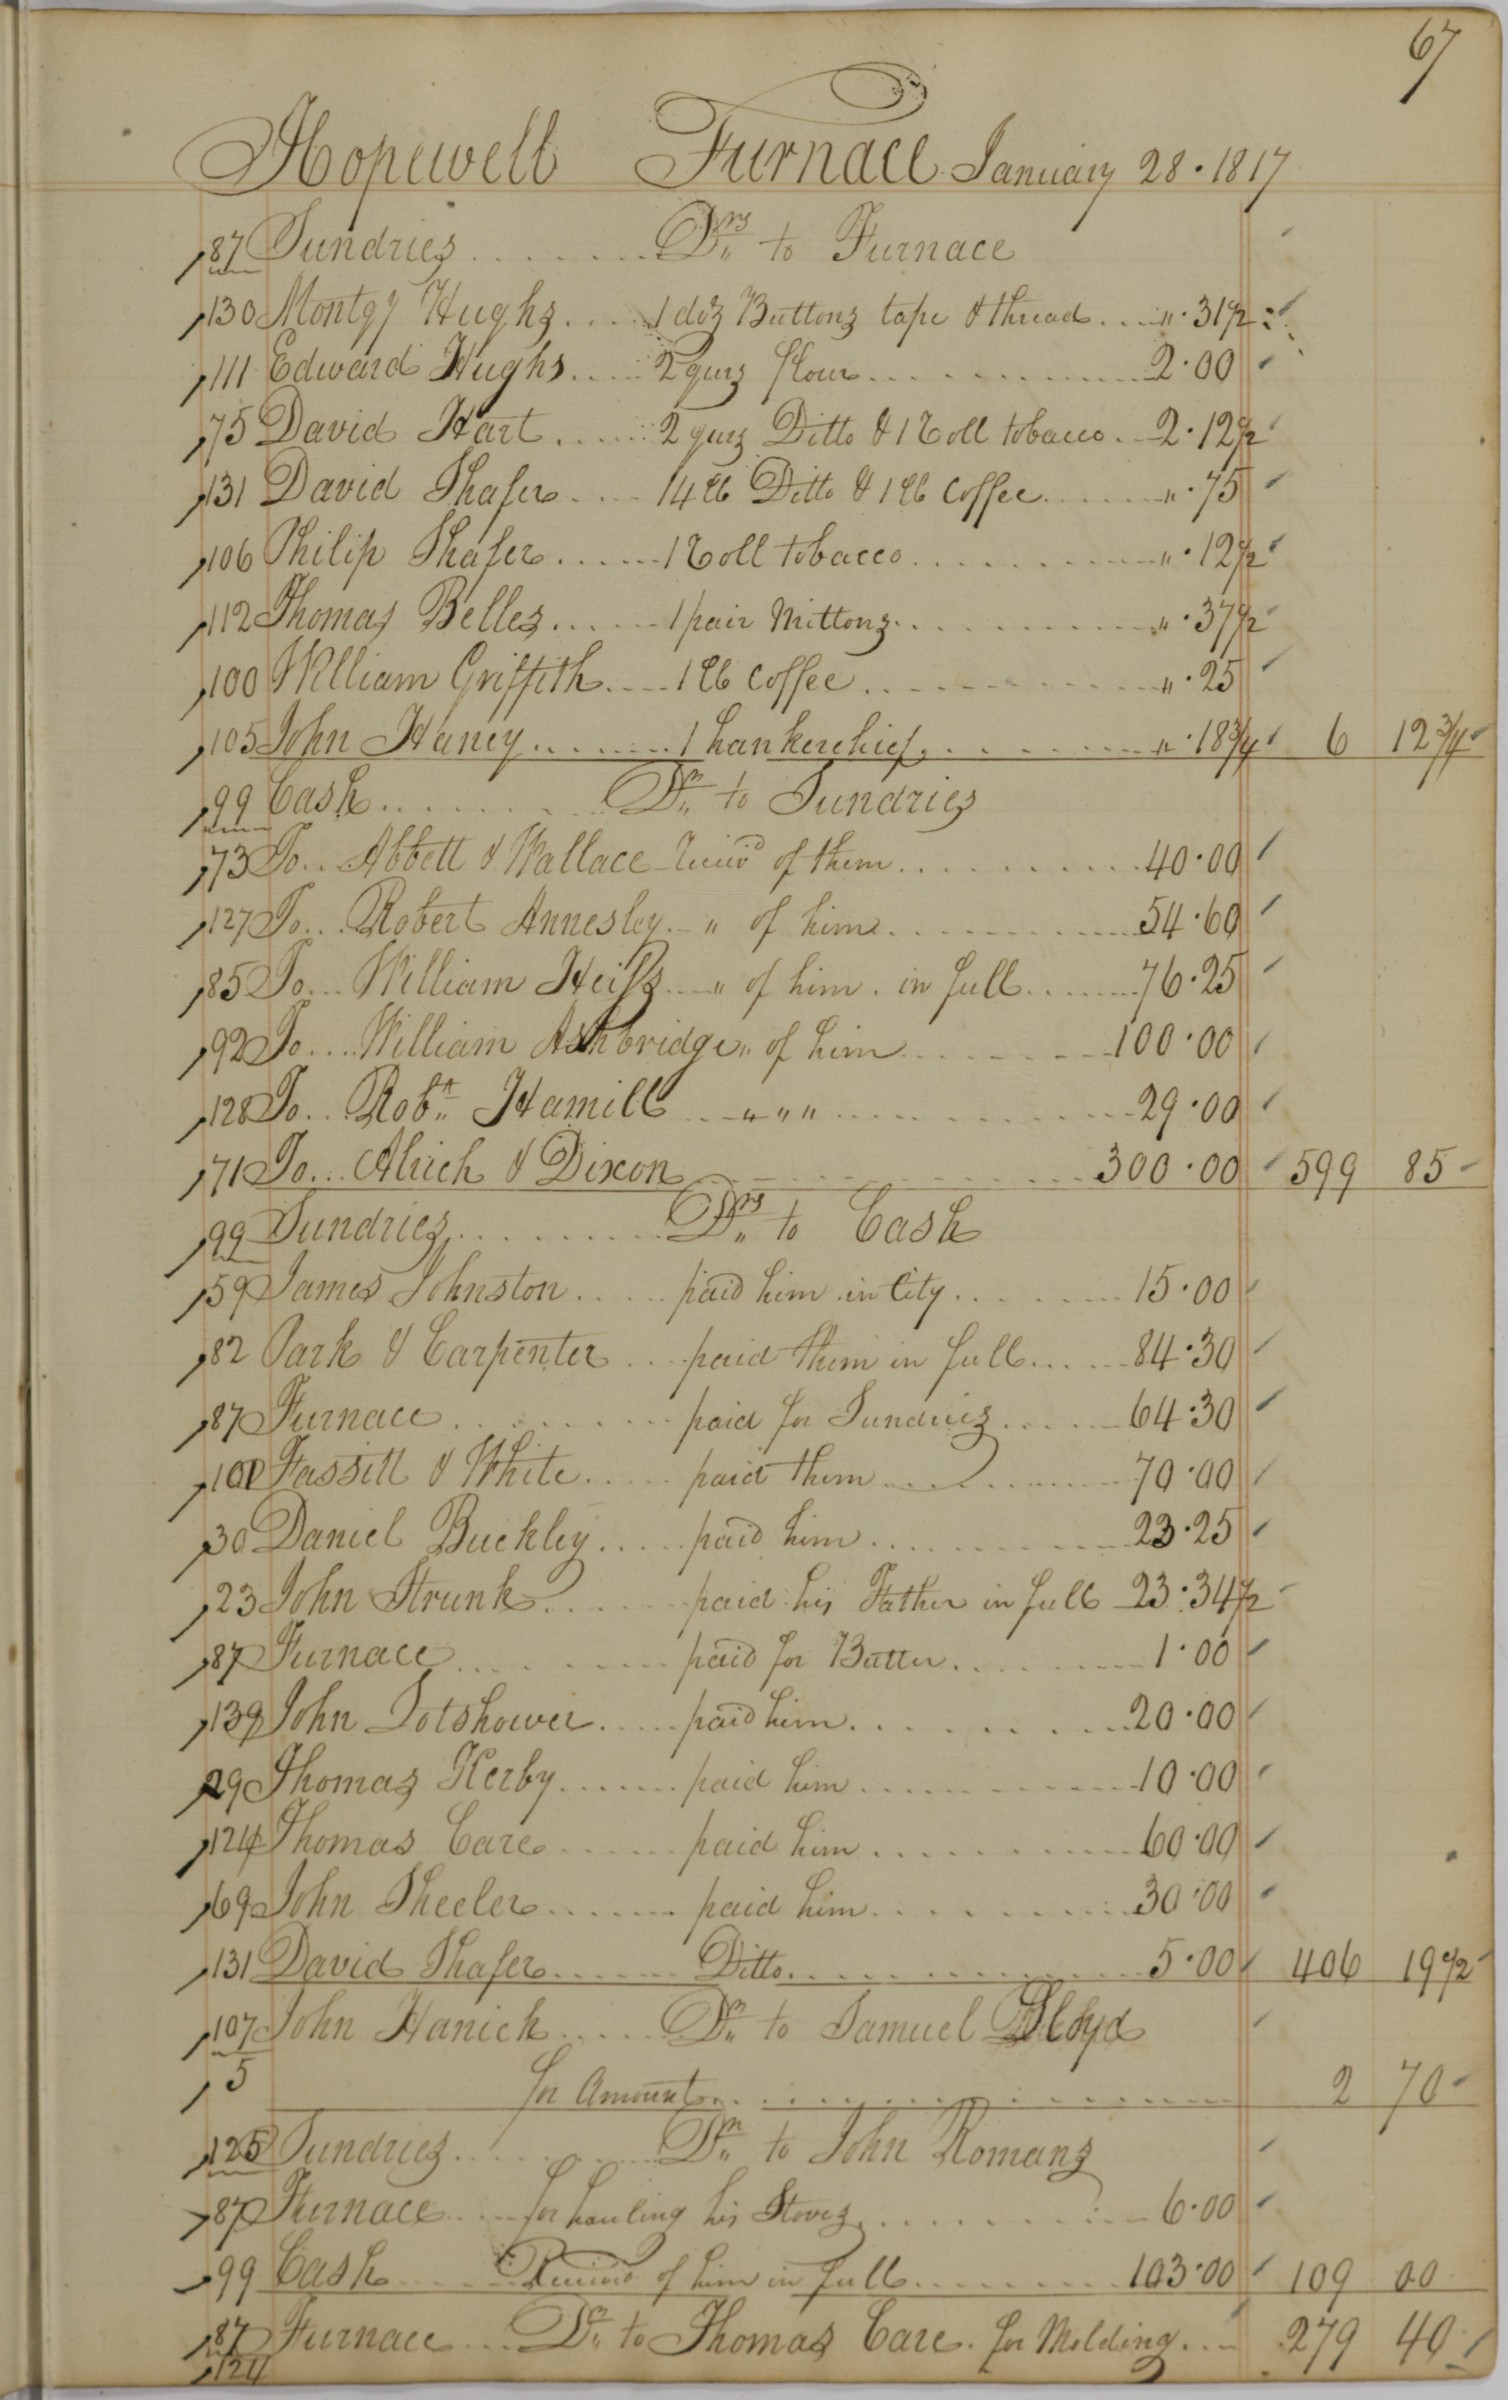 67
Hopewell Furnace January 28 · 1817
87 Sundries ........ Drs to Furnace
130 Montgy Hughs .... 1 doz Buttons tape & thread ... " · 31 1/2
111 Edward Hughs ..... 2 qurs flour ........... 2 · 00
75 David Hart ...... 2 qurs Ditto & 1 Roll tobacco .. 2 · 12 1/2
131 David Shafer .... 14 lb Ditto & 1 lb Coffee ...... " · 75
106 Philip Shafer ...... 1 Roll tobacco .......... " · 12 1/2
112 Thomas Belles ...... 1 pair Mittons .......... " · 37 1/2
100 William Griffith .... 1 lb Coffee .......... " · 25
105 John Haney ....... 1 hankerchief ........ " · 18 3/4 6 12 3/4
99 Cash ......... Dr to Sundries
73 To .. Abbett & Wallace Receivd of them ......... 40 · 00
127 To ... Robert Annesley .. " of him .......... 54 · 60
85 To ... William Heiss ... " of him . in full ..... 76 · 25
92 To .... William Ashbridge " of him ........ 100 · 00
128 To ... Robt Hamill ... " " " ............ 29 · 00
71 To ... Alrich & Dixon ............ 300 · 00 599 85
99 Sundries .......... Drs to Cash
59 James Johnston ..... paid him in City ........ 15 · 00
82 Park & Carpenter ... paid them in full ..... 84 · 30
87 Furnace .......... paid for Sundries ..... 64 · 30
101 Fassitt & White ..... paid them .......... 70 · 00
30 Daniel Buckley ..... paid him ........... 23 · 25
23 John Strunk ....... paid his Father in full 23 · 34 1/2
87 Furnace ......... paid for Butter ........ 1 · 00
139 John Lotshower ..... paid him .......... 20 · 00
29 Thomas Kerby ....... paid him .......... 10 · 00
124 Thomas Care ...... paid him .......... 60 · 00
69 John Sheeler ....... paid him .......... 30 · 00
131 David Shafer ....... Ditto ............ 5 · 00 406 19 1/2
107 John Hanick ..... Dr to Samuel Lloyd
5 for Amount ............ 2 70
125 Sundries ......... Dr to John Romans
87 Furnace .... for hauling his Stoves .......... 6 · 00
99 Cash ..... Receivd of him in full ......... 103 · 00 109 00
87 Furnace ... Dr to Thomas Care . for Molding ... 279 40
124